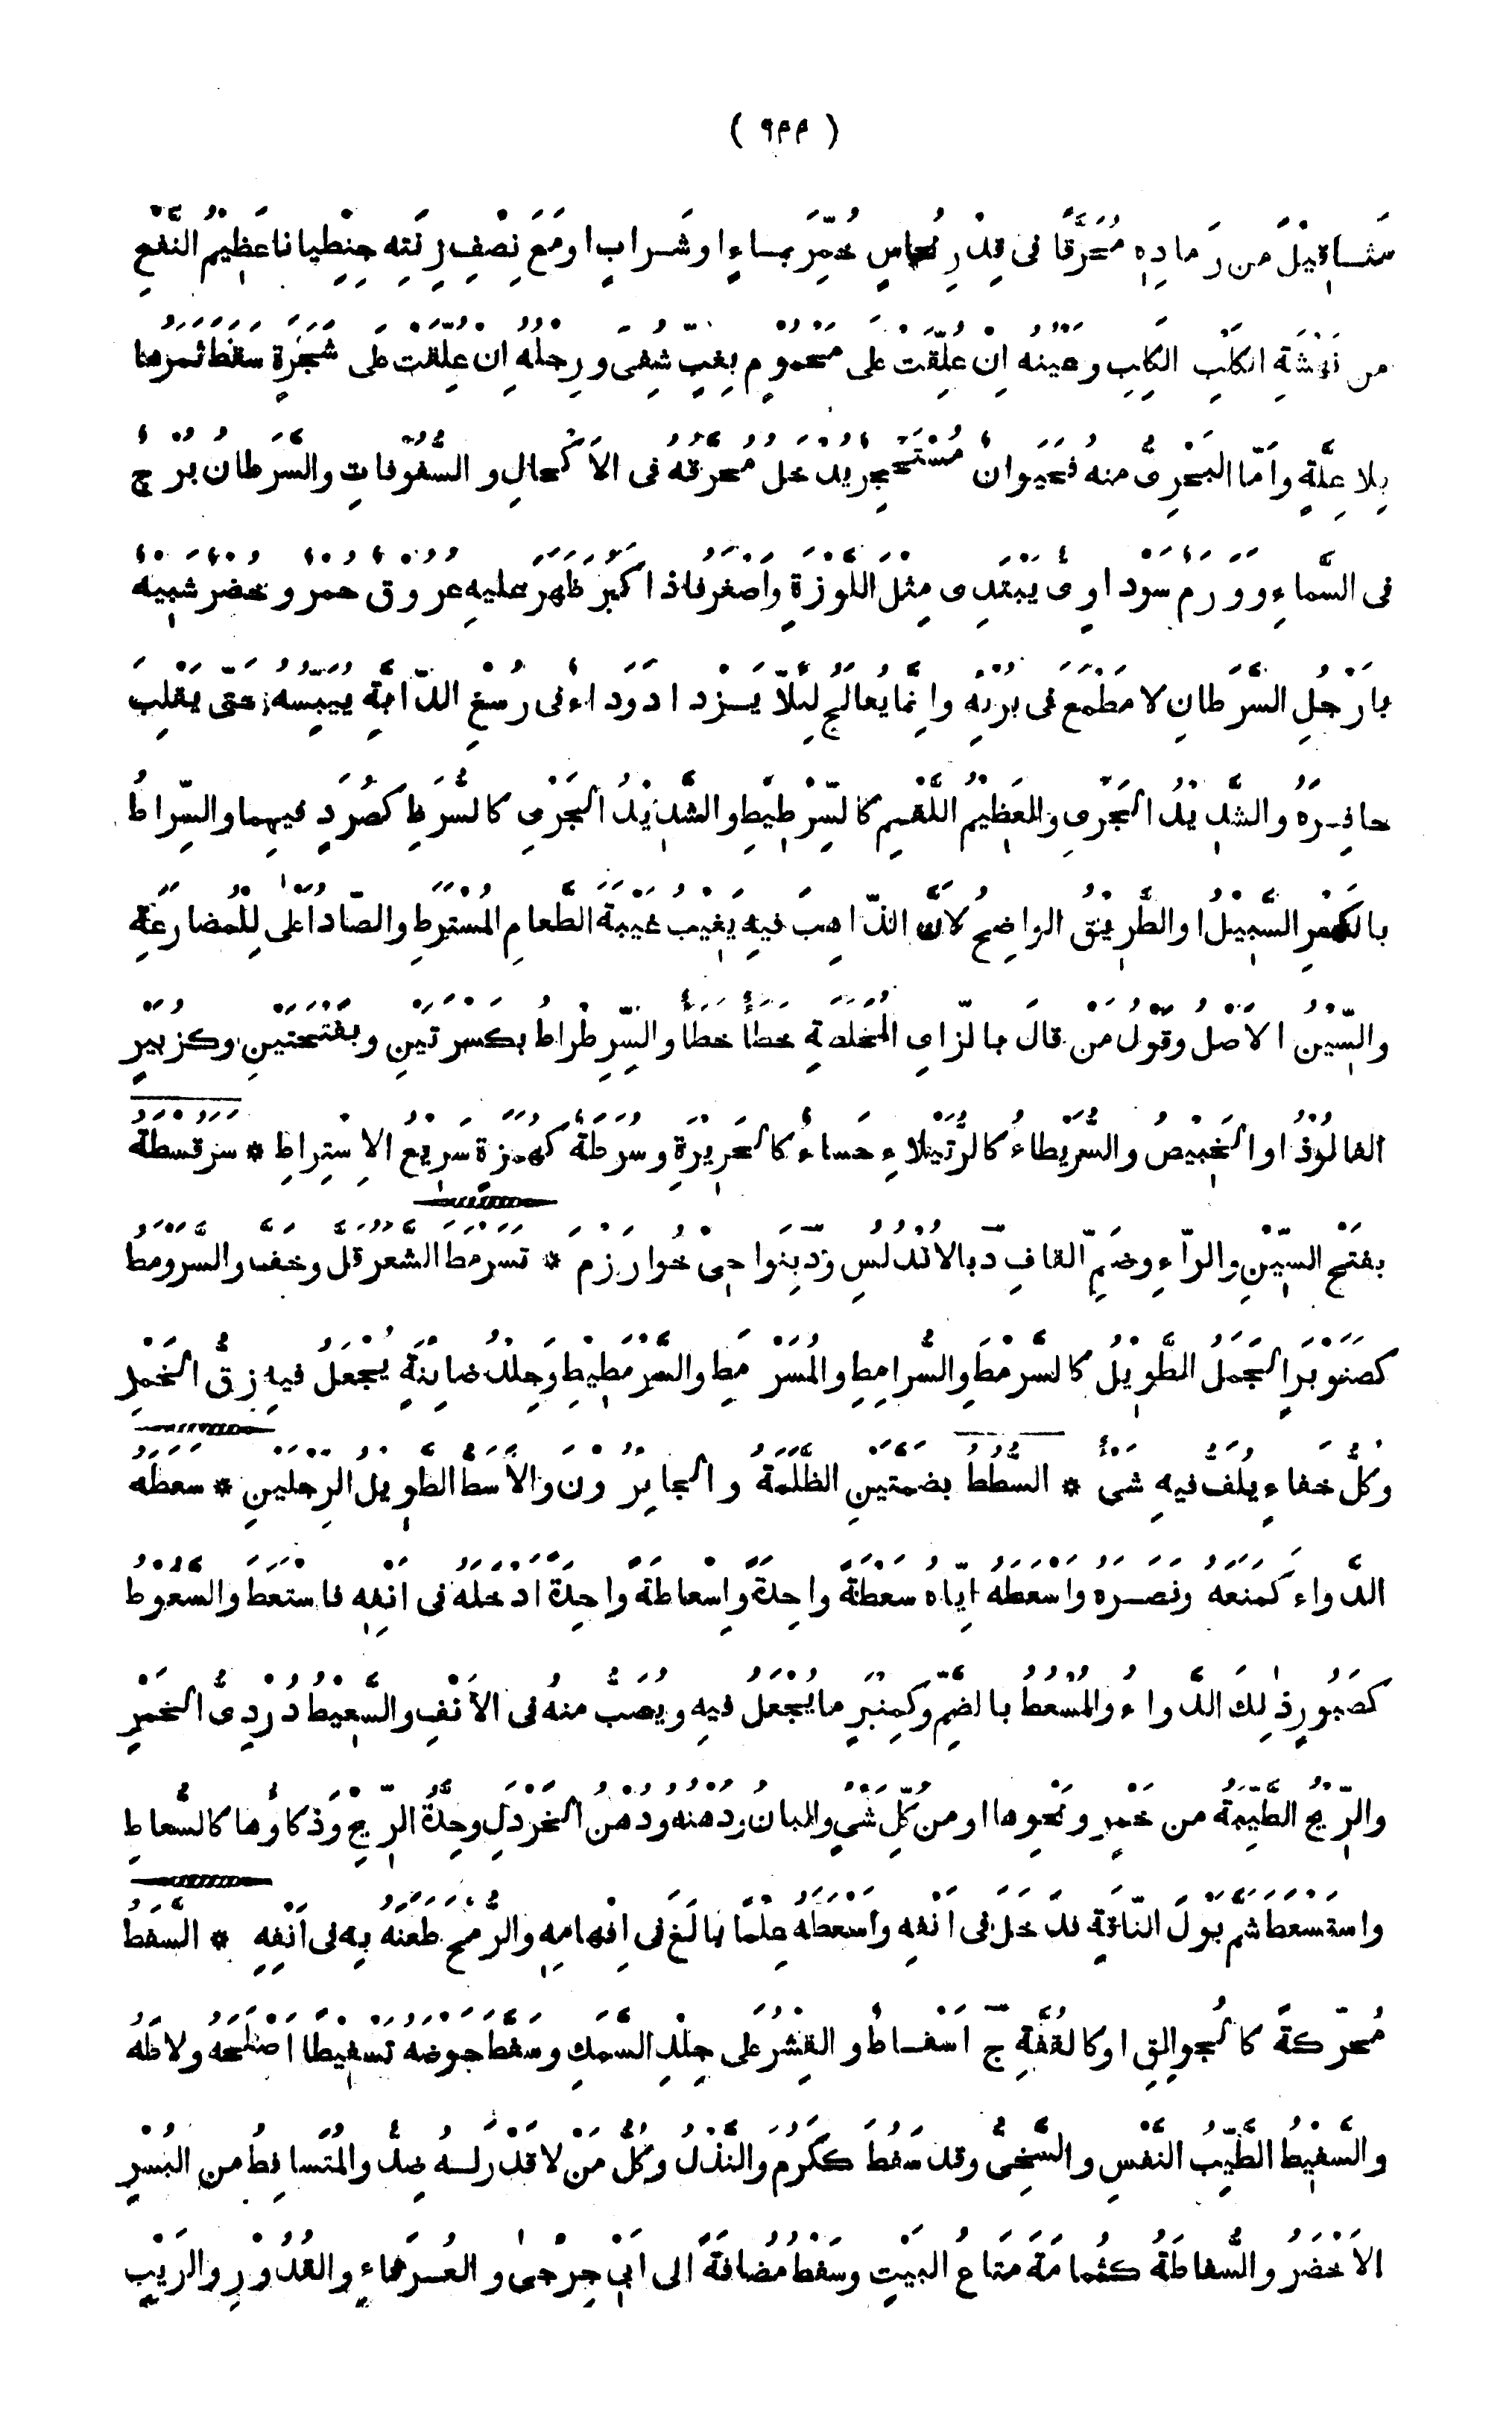 ( ٩٣٣ )
مَثاقِيْلَ من رَمادِهِ مُحَرَّقًا فى قِدْرِ نُحاسٍ مُحَمَّرٍ بماءٍ او شَرابٍ او مَعَ نِصْفِ زِنَتِهِ جِنْطِيانا عَظِيْمُ النَّفْعِ
من نَهْشَةِ الكَلْبِ الكَلِبِ وعَيْنُهُ اِنْ عُلِّقَتْ على مَحْمُوْمٍ بِغِبٍّ شُفِىَ ورِجْلُهُ اِنْ عُلِّقَتْ على شَجَرَةٍ سَقَطَ ثَمَرُها
بِلا عِلَّةٍ وأمّا البَحْرِىُّ منهُ فحَيَوانٌ مُسْتَحْجِرٌ يَدْخُلُ مُحْرَقُهُ فى الأَكْحالِ والسَّفُوفاتِ والسَّرَطانُ بُرْجٌ
فى السَّماءِ ووَرَمٌ سَوْداوِىٌّ يَبْتَدِى مِثْلَ اللَّوْزَةِ وأَصْغَرَ فاذا كَبُرَ ظَهَرَ عليهِ عُرُوْقٌ حُمْرٌ وخُضْرٌ شَبِيْهٌ
بأَرْجُلِ السَّرَطانِ لا مَطْمَعَ فى بُرْئِهِ وإنَّما يُعالَجُ لِئَلّا يَزْدادَ وداءٌ فى رُسْغِ الدّابَّةِ يُيَبِّسُهُ حَتّى يَقْلِبَ
حافِرَهُ والشَّدِيْدُ الجَرْىِ والعَظِيْمُ اللَّقْمِ كالسِّرْطِيْطِ والشَّدِيْدُ الجَرْىِ كالسُّرَطِ كصُرَدٍ فيهِما والسِّراطُ
بالكَسْرِ السَّبِيْلُ او الطَّرِيْقُ الواضِحُ لأنَّ الذّاهِبَ فيهِ يَغِيْبُ غَيْبَةَ الطَّعامِ المُسْتَرَطِ والصّادُ أعلى لِلْمُضارَعَةِ
والسِّيْنُ الأَصْلُ وقَوْلُ مَنْ قالَ بالزّاىِ المُخَلَّصَةِ خَطَأٌ خَطَأٌ والسِّرِطْراطُ بكَسْرَتَيْنِ وبفَتْحَتَيْنِ وكزُبَيْرٍ
الفالُوْذُ او الخَبِيْصُ والسُّرَيْطاءُ كالرُّتَيْلاءِ حَساءٌ كالحَرِيْرَةِ وسُرَطَةٌ كهُمَزَةٍ سَرِيْعُ الاِسْتِراطِ * سَرَقُسْطَةُ
بفَتْحِ السِّيْنِ والرّاءِ وضَمِّ القافِ د بالأَنْدُلُسِ ود بِنَواحِىْ خُوارَزْمَ * تَسَرْمَطَ الشَّعَرُ قَلَّ وخَفَّ والسَّرَوْمَطُ
كصَنَوْبَرٍ الجَمَلُ الطَّوِيْلُ كالسَّرْمَطِ والسُّرامِطِ والمُسَرْمَطِ والسَّرْمَطِيْطِ وجِلْدُ ضائِنَةٍ يُجْعَلُ فيهِ زِقُّ الخَمْرِ
وكُلُّ خِفاءٍ يُلَفُّ فيهِ شَىْءٌ * السُّطُطُ بضَمَّتَيْنِ الظَّلَمَةُ والجائِرُوْنَ والأَسَطُّ الطَّوِيْلُ الرِّجْلَيْنِ * سَعَطَهُ
الدَّواءَ كمَنَعَهُ ونَصَرَهُ وأَسْعَطَهُ إيّاهُ سَعْطَةً واحِدَةً وإسْعاطَةً واحِدَةً أَدْخَلَهُ فى أَنْفِهِ فاسْتَعَطَ والسَّعُوْطُ
كصَبُوْرٍ ذٰلِكَ الدَّواءُ والمُسْعُطُ بالضَّمِّ وكمِنْبَرٍ ما يُجْعَلُ فيهِ ويُصَبُّ منهُ فى الأَنْفِ والسَّعِيْطُ دُرْدِىُّ الخَمْرِ
والرِّيْحُ الطَّيِّبَةُ من خَمْرٍ ونَحْوِها او من كُلِّ شَىْءٍ والبانُ ودُهْنُهُ ودُهْنُ الخَرْدَلِ وحِدَّةُ الرِّيْحِ وذَكاؤُها كالسُّعاطِ
واسْتَسْعَطَ شَمَّ بَوْلَ الناقَةِ فدَخَلَ فى أَنْفِهِ وأَسْعَطَهُ عِلْمًا بالَغَ فى إفْهامِهِ والرُّمْحَ طَعَنَهُ بِهِ فى أَنْفِهِ * السَّفَطُ
مُحَرَّكَةً كالجُوالِقِ او كالقُفَّةِ ج أَسْفاطٌ والقِشْرُ على جِلْدِ السَّمَكِ وسَفَّطَ حَوْضَهُ تَسْفِيْطًا أَصْلَحَهُ ولاطَهُ
والسَّفِيْطُ الطَّيِّبُ النَّفْسِ والسَّخِىُّ وقد سَفُطَ ككَرُمَ والنَّذْلُ وكُلُّ مَنْ لا قَدْرَ لَهُ ضِدٌّ والمُتَساقِطُ من البُسْرِ
الأَخْضَرُ والسُّفاطَةُ كثُمامَةٍ مَتاعُ البَيْتِ وسَفْطُ مُضافَةً الى أَبِىْ جِرْجٰى والعُرَفاءِ والقُدُوْرِ والزَّيْتِ